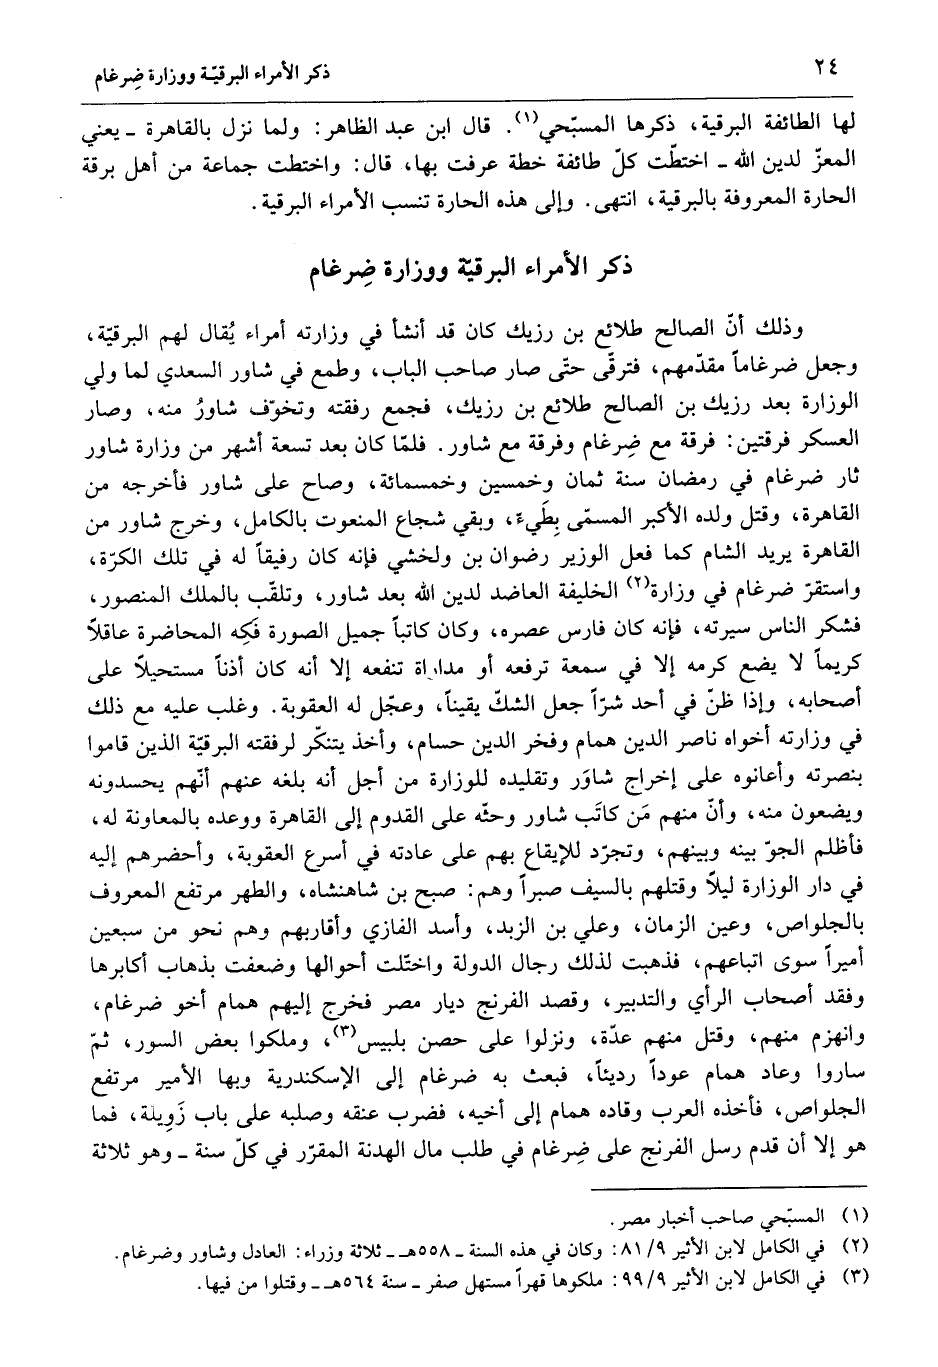 ٢٤
ذكر الأمراء البرقيّة ووزارة ضِرغام
لها الطائفة البرقية، ذكرها المسبّحي(١). قال ابن عبد الظاهر: ولما نزل بالقاهرة ـ يعني
المعزّ لدين الله ـ اختطّت كلّ طائفة خطة عرفت بها، قال: واختطت جماعة من أهل برقة
الحارة المعروفة بالبرقية، انتهى. وإلى هذه الحارة تنسب الأمراء البرقية.
ذكر الأمراء البرقيّة ووزارة ضِرغام
وذلك أنّ الصالح طلائع بن رزيك كان قد أنشأ في وزارته أمراء يُقال لهم البرقيّة،
وجعل ضرغاماً مقدّمهم، فترقّى حتّى صار صاحب الباب، وطمع في شاور السعدي لما ولي
الوزارة بعد رزيك بن الصالح طلائع بن رزيك، فجمع رفقته وتخوّف شاورُ منه، وصار
العسكر فرقتين: فرقة مع ضِرغام وفرقة مع شاور. فلمّا كان بعد تسعة أشهر من وزارة شاور
ثار ضرغام في رمضان سنة ثمان وخمسين وخمسمائة، وصاح على شاور فأخرجه من
القاهرة، وقتل ولده الأكبر المسمّى بِطَيء، وبقي شجاع المنعوت بالكامل، وخرج شاور من
القاهرة يريد الشام كما فعل الوزير رضوان بن ولخشي فإنه كان رفيقاً له في تلك الكرّة،
واستقرّ ضرغام في وزارة(٢) الخليفة العاضد لدين الله بعد شاور، وتلقّب بالملك المنصور،
فشكر الناس سيرته، فإنه كان فارس عصره، وكان كاتباً جميل الصورة فَكِه المحاضرة عاقلاً
كريماً لا يضع كرمه إلا في سمعة ترفعه أو مداراة تنفعه إلا أنه كان أذناً مستحيلاً على
أصحابه، وإذا ظنّ في أحد شرّاً جعل الشكّ يقيناً، وعجّل له العقوبة. وغلب عليه مع ذلك
في وزارته أخواه ناصر الدين همام وفخر الدين حسام، وأخذ يتنكّر لرفقته البرقيّة الذين قاموا
بنصرته وأعانوه على إخراج شاوَر وتقليده للوزارة من أجل أنه بلغه عنهم أنّهم يحسدونه
ويضعون منه، وأنّ منهم مَن كاتَب شاور وحثّه على القدوم إلى القاهرة ووعده بالمعاونة له،
فأظلم الجوّ بينه وبينهم، وتجرّد للإيقاع بهم على عادته في أسرع العقوبة، وأحضرهم إليه
في دار الوزارة ليلاً وقتلهم بالسيف صبراً وهم: صبح بن شاهنشاه، والطهر مرتفع المعروف
بالجلواص، وعين الزمان، وعلي بن الزبد، وأسد الفازي وأقاربهم وهم نحو من سبعين
أميراً سوى اتباعهم، فذهبت لذلك رجال الدولة واختّلت أحوالها وضعفت بذهاب أكابرها
وفقد أصحاب الرأي والتدبير، وقصد الفرنج ديار مصر فخرج إليهم همام أخو ضرغام،
وانهزم منهم، وقتل منهم عدّة، ونزلوا على حصن بلبيس(٣)، وملكوا بعض السور، ثمّ
ساروا وعاد همام عوداً رديئاً، فبعث به ضرغام إلى الإسكندرية وبها الأمير مرتفع
الجلواص، فأخذه العرب وقاده همام إلى أخيه، فضرب عنقه وصلبه على باب زَويلة، فما
هو إلا أن قدم رسل الفرنج على ضِرغام في طلب مال الهدنة المقرّر في كلّ سنة ـ وهو ثلاثة
(١) المسبّحي صاحب أخبار مصر.
(٢) في الكامل لابن الأثير ٩/ ٨١: وكان في هذه السنة ـ ٥٥٨هـ ـ ثلاثة وزراء: العادل وشاور وضرغام.
(٣) في الكامل لابن الأثير ٩/ ٩٩: ملكوها قهراً مستهل صفر ـ سنة ٥٦٤هـ ـ وقتلوا من فيها.